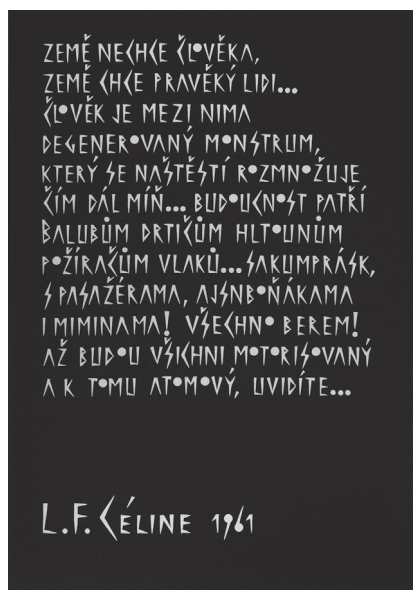 ZEMĚ NECHCE ČLOVĚKA,
ZEMĚ CHCE PRAVĚKÝ LIDI...
ČLOVĚK JE MEZI NIMA
DEGENEROVANÝ MONSTRUM,
KTERÝ SE NAŠTĚSTÍ ROZMNOŽUJE
ČÍM DÁL MÍŇ... BUDOUCNOST PATŘÍ
BALUBŮM DRTIČŮM HLTOUNŮM
POŽÍRAČŮM VLAKŮ... SAKUMPRÁSK,
S PASAŽÉRAMA, AJSNBOŇÁKAMA
I MIMINAMA! VŠECHNO BEREM!
AŽ BUDOU VŠICHNI MOTORISOVANÝ
A K TOMU ATOMOVÝ, UVIDÍTE...
L.F. CÉLINE 1961